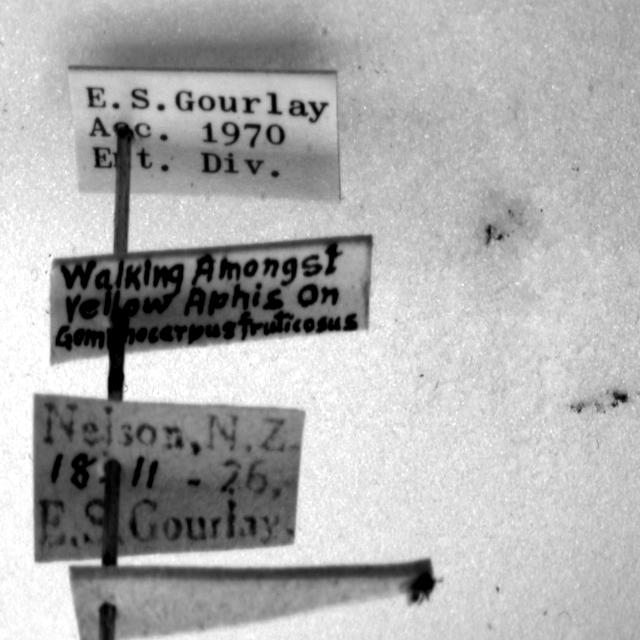 E.S.Gourlay
Acc. 1970
Ent. Div.
Walking Amongst
Yellow Aphis On
Gomphocarpus fruticosus
Nelson, N.Z.
18-11-26.
E.S. Gourlay.